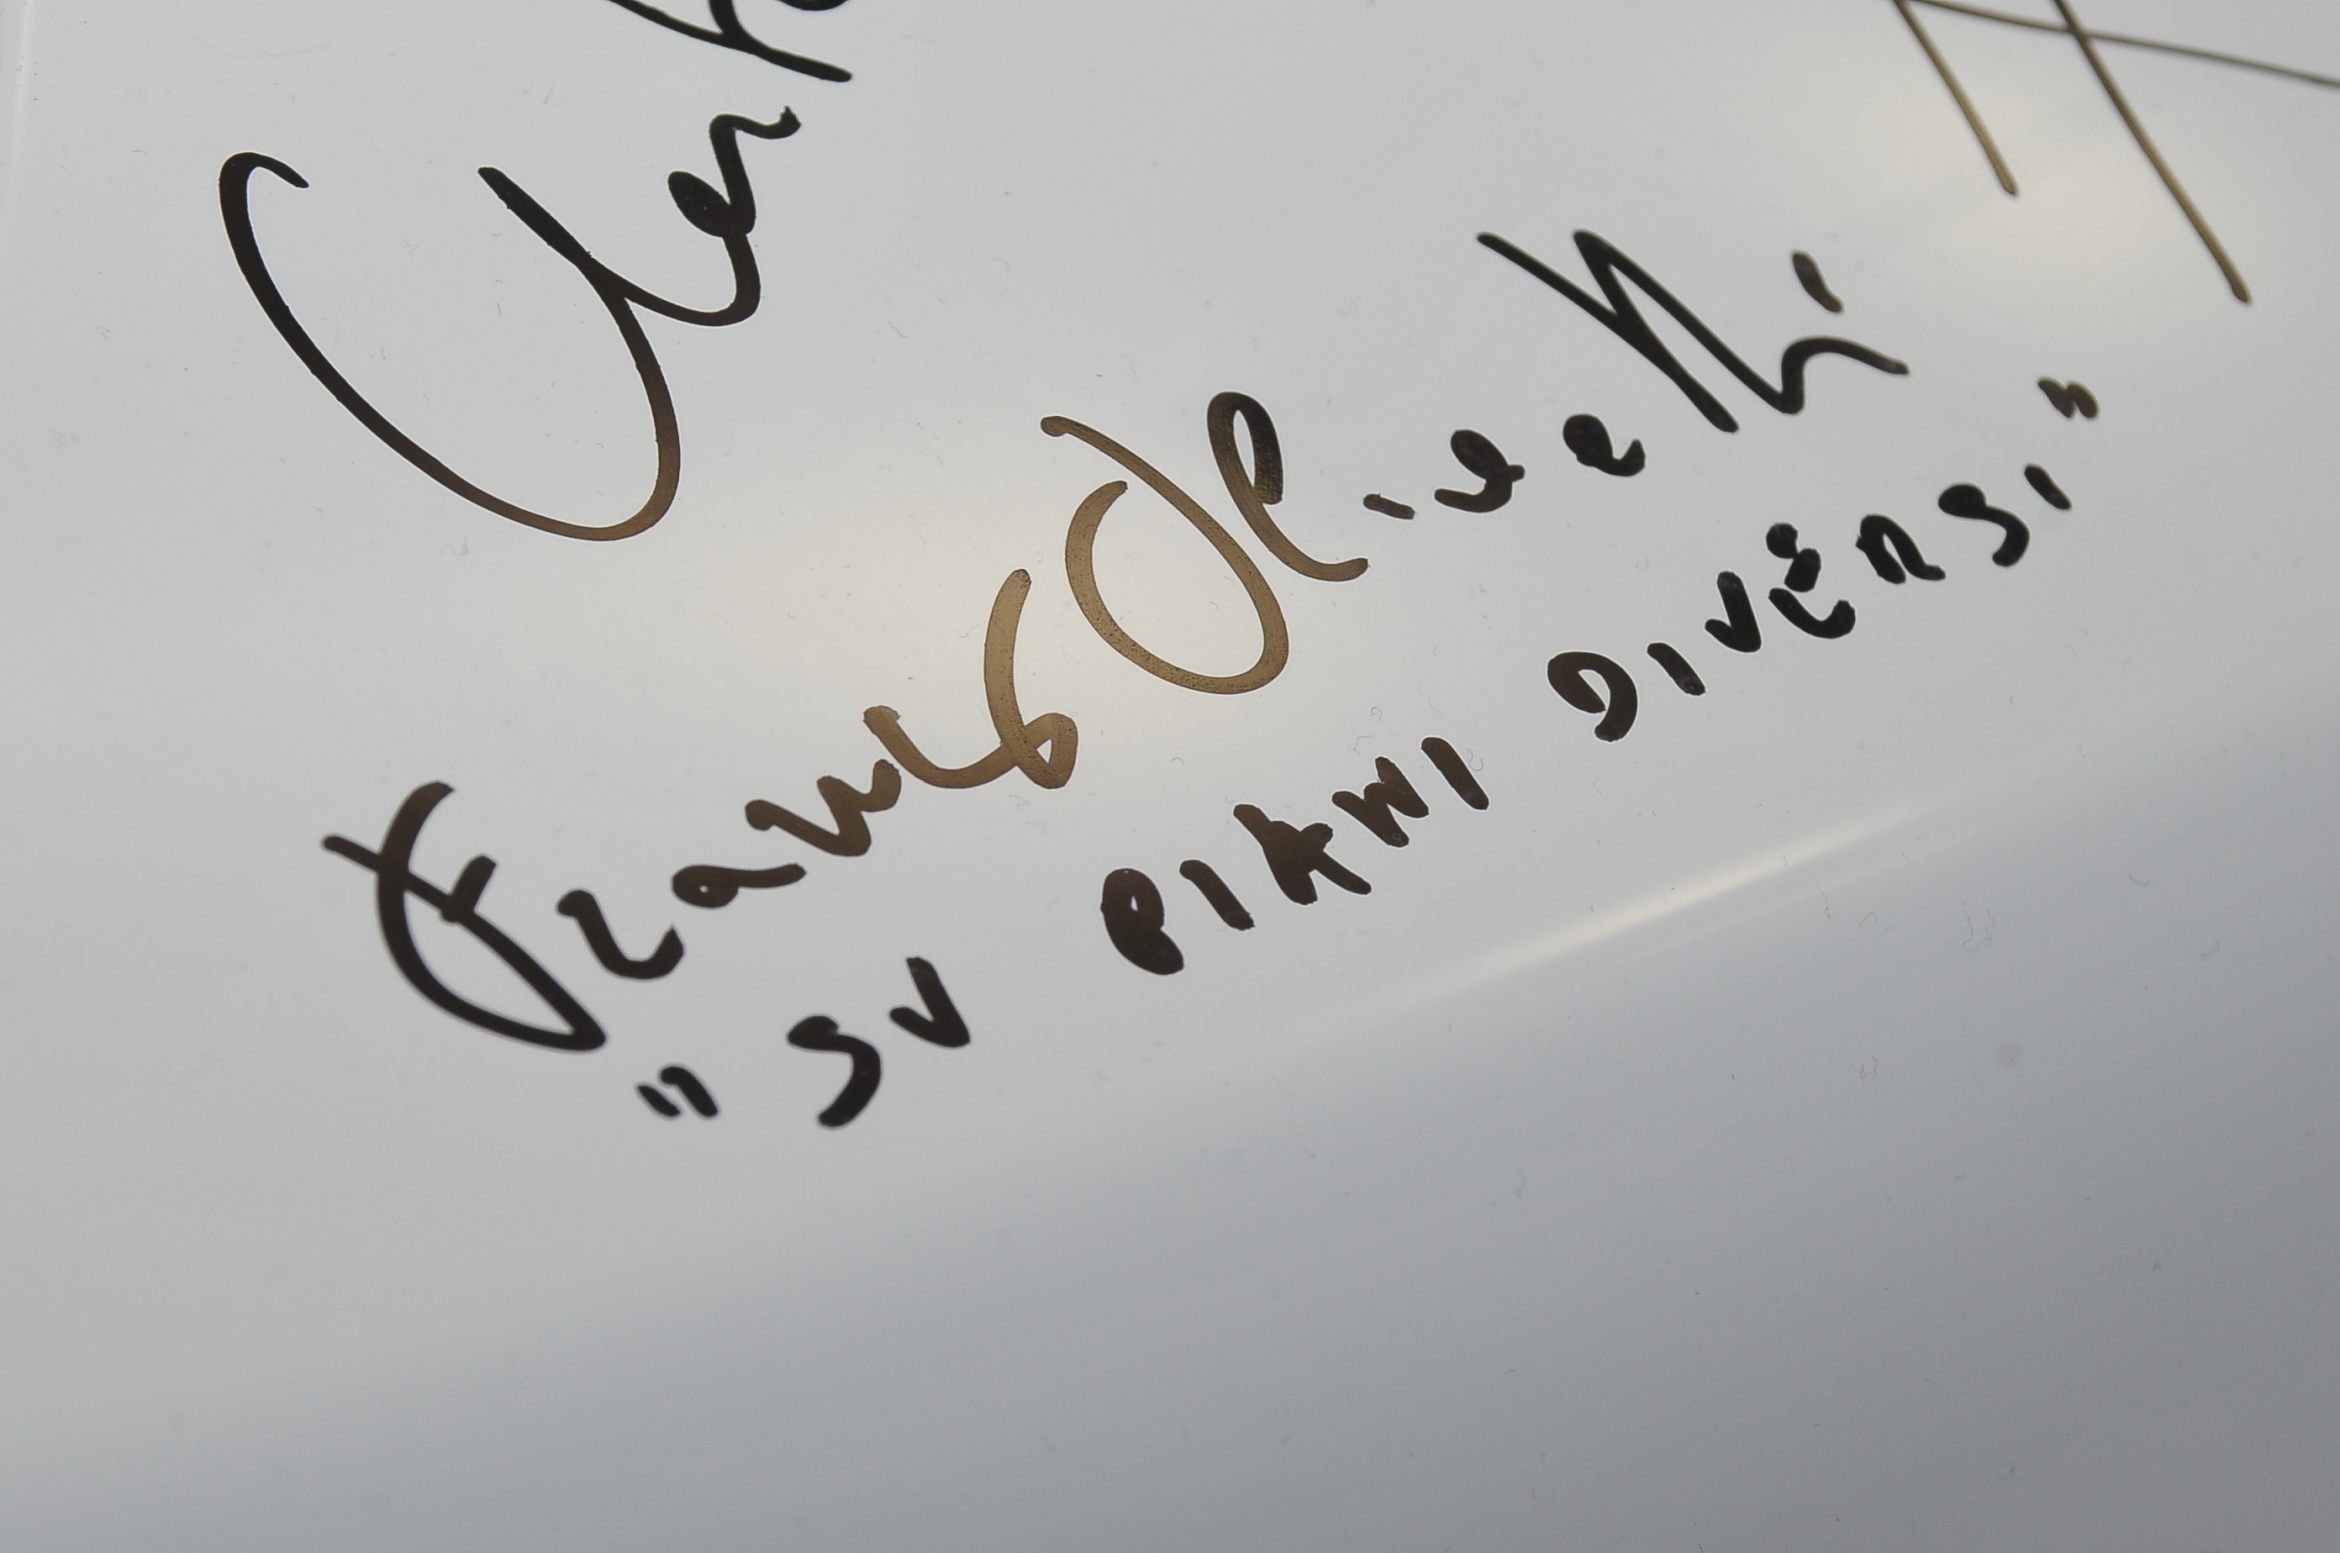 Franco Olivetti
"SU PIANI DIVERSI"